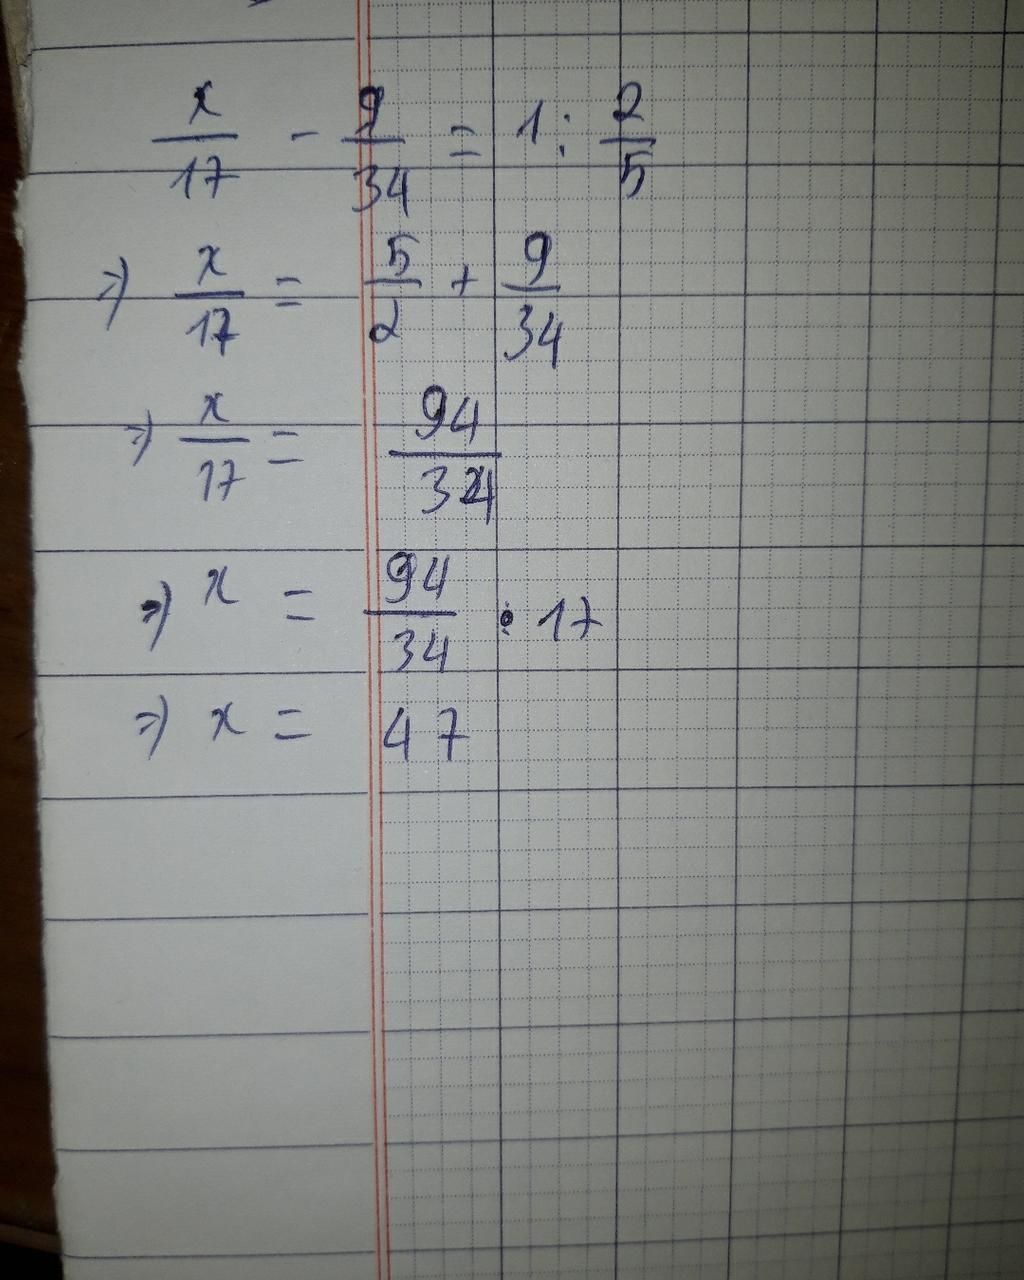 x/17 - 9/34 = 1 : 2/5
=> x/17 = 5/2 + 9/34
=> x/17 = 94/34
=> x = 94/34 · 17
=> x = 47